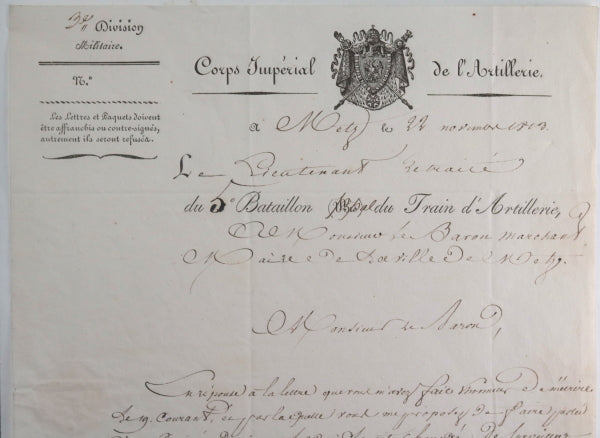 3e Division
Militaire.
N.º
Les Lettres et Paquets doivent
être affranchis ou contre-signés,
autrement ils seront refusés.
Corps Impérial de l'Artillerie.
à Metz le 22 novembre 1813.
Le Lieutenant retraité
du 5e Bataillon Pal du Train d'Artillerie,
A Monsieur le Baron marchant
Maire de la ville de Metz.
Monsieur le Baron,
En réponse à la lettre que vous m'avez fait l'honneur de m'écrire
le 19 courant, par laquelle vous me proposez de faire partie